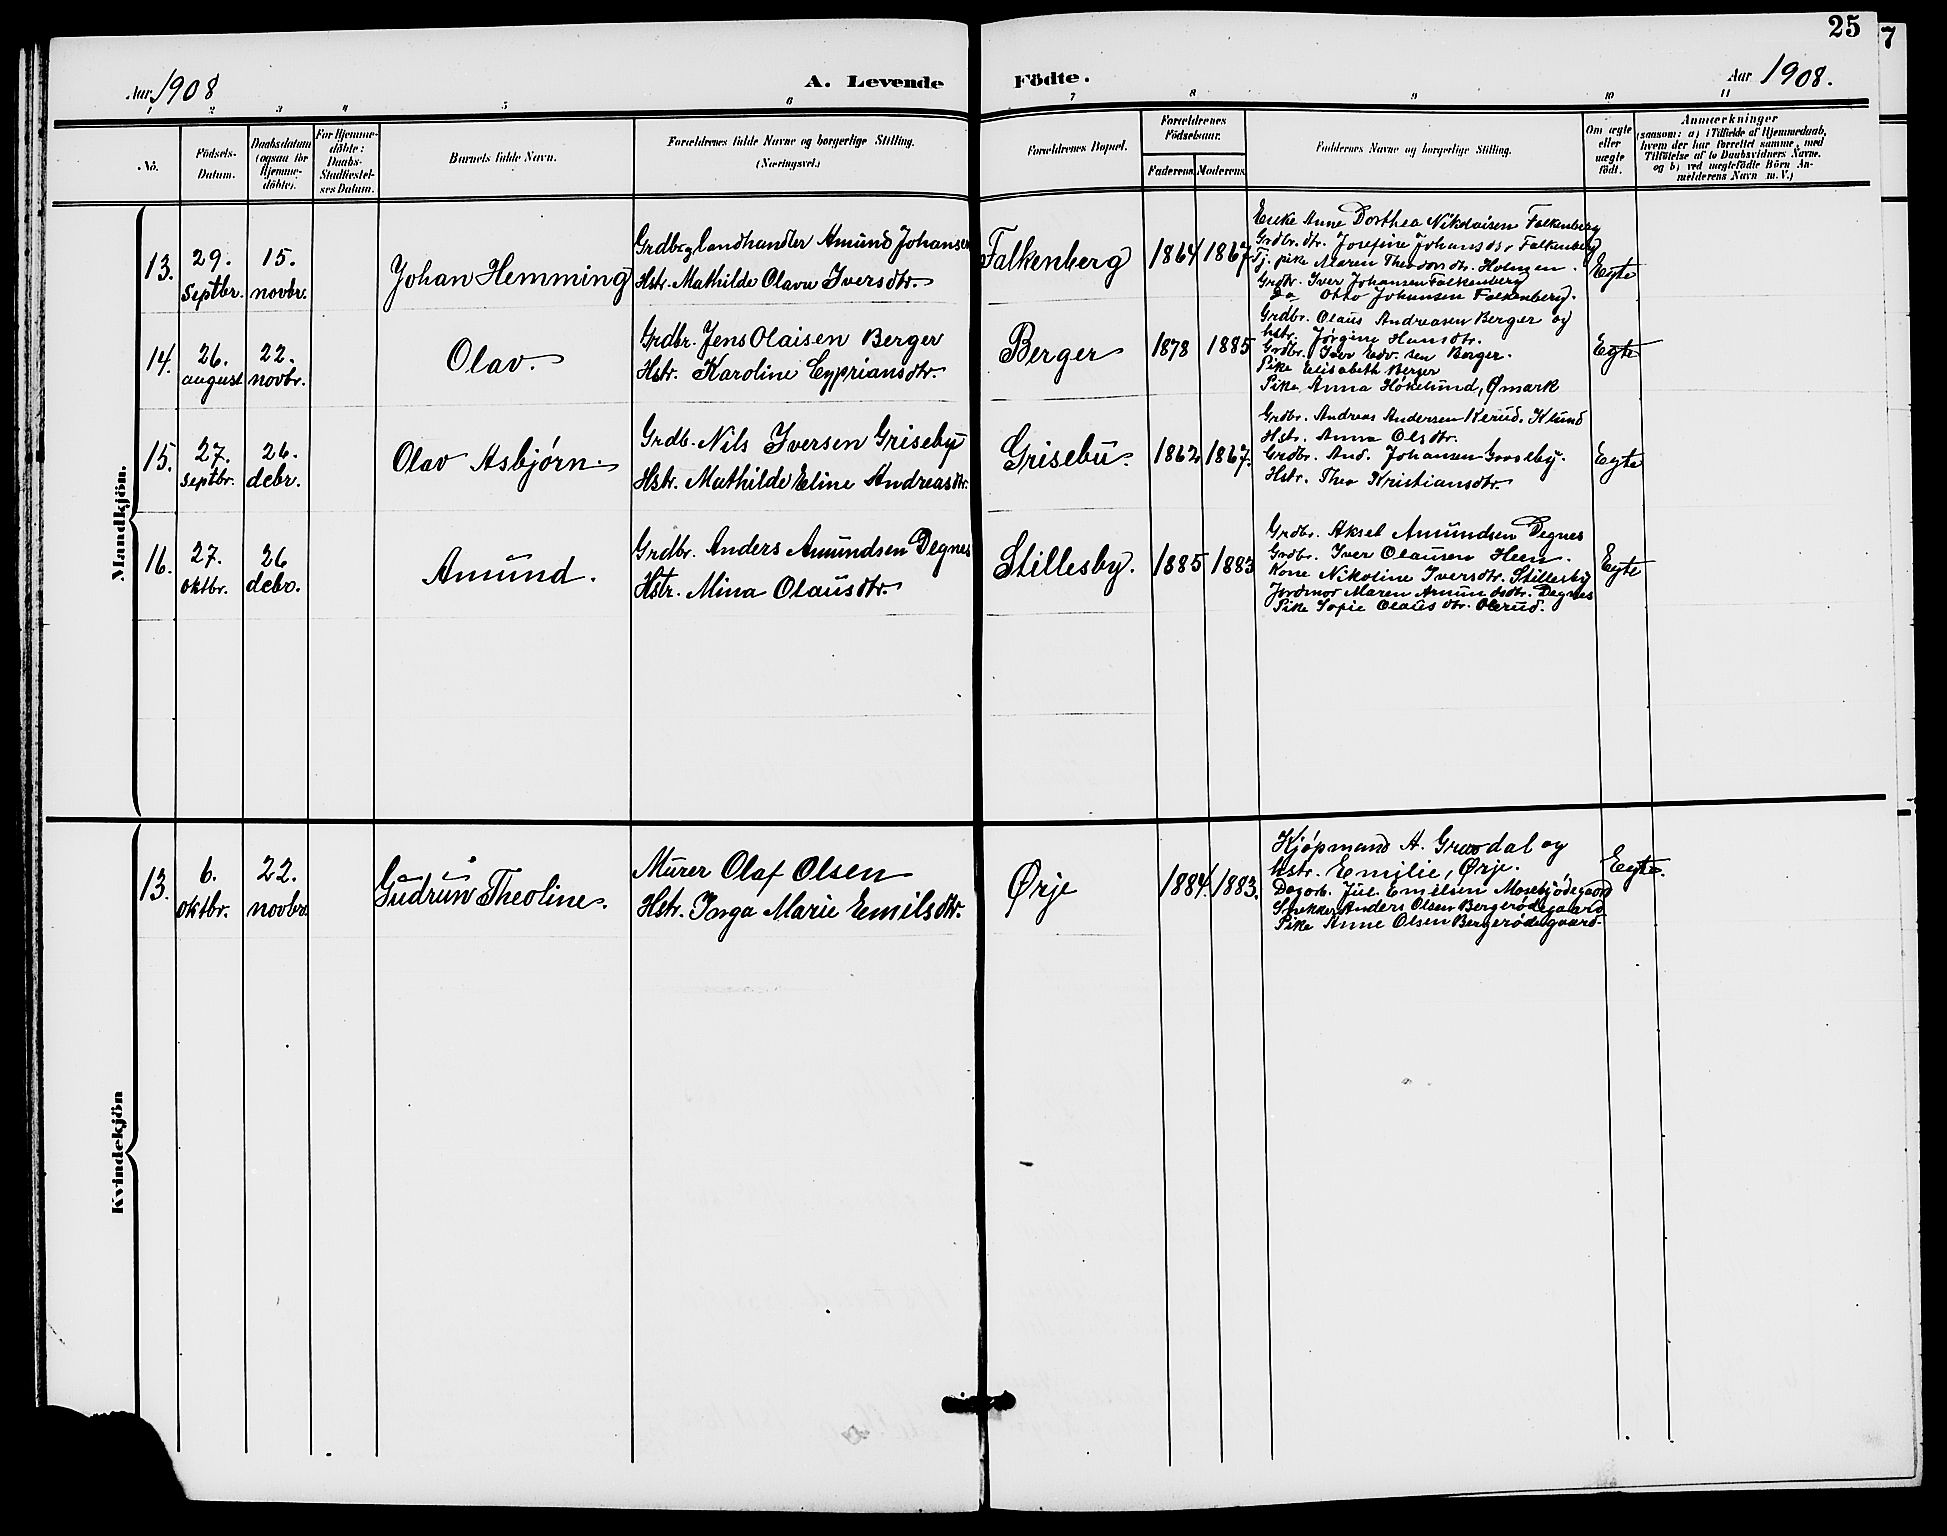 25
7
Aar 1908
A. Levende Födte.
Aar 1908.
1 2 3 4 5 6 7 8 9 10 11
No.
Födsels-
Datum.
Daabsdatum
(ogsaa for
Hjemme-
döbte).
For Hjemme-
döbte:
Daabs-
Stadfæstel-
ses Datum.
Barnets fulde Navn.
Forældrenes fulde Navne og borgerlige Stilling.
(Næringsvei.)
Forældrenes Bopæl.
Forældrenes
Födselsaar.
Faderens
Moderens
Faddernes Navne og borgerlige Stilling.
Om ægte
eller
uægte
født.
Anmærkninger
(saasom: a) i Tilfælde af Hjemmedaab,
hvem der har forrettet samme, med
Tilföielse af to Daabsvidners Navne,
og b) ved uægtefødte Börn An-
melderens Navn m. V.)
Mandkjön.
13.
29.
septbr.
15.
novbr.
Johan Hemming
Grdbr og landhandler Amund Johansen
Hstr. Mathilde Olava Iversdtr.
Falkenberg
1864
1867
Enke Anne Dorthea Nikolaisen Falkenberg
Grdbr. dtr. Josefine Johansdr. Falkenberg
Tj. pike Maren Theodorsdtr. Holmgen.
Grdbr. Iver Johansen Falkenberg
Do Otto Johansen Falkenberg.
Egte
14.
26.
august
22.
novbr.
Olav.
Grdbr. Jens Olaisen Berger
Hstr. Karoline Cypriansdtr.
Berger
1878
1885
Grdbr. Olaus Andreasen Berger og
hstr. Jørgine Hansdtr.
Grdbr. Iver Edv. sen Berger.
Pike Elisabeth Berger
Pike Anna Høkelund, Ømark
Egte
15.
27.
septbr.
26.
debr.
Olav Asbjørn.
Grdb. Nils Iversen Griseby
Hstr. Mathilde Eline Andreasdtr.
Grisebu.
1862
1867.
Grdbr. Andreas Andersen Kerud. Klund
Hstr. Anna Olsdtr.
Grdbr. And. Johansen
Hstr. Thea Kristiansdtr.
Egte
16.
27.
oktbr.
26
debr.
Amund.
Grdbr. Anders Amundsen Degnes
Hstr. Mina Olausdtr.
Stillesby.
1885
1883
Grdbr. Aksel Amundsen Degnes
Grdbr. Iver Olausen Heen.
Kone Nikoline Iversdtr. Stillesby
Jordmor Maren Amundsdtr. Degnes
Pike Sofie Olausdtr. Olerud.
Egte
Kvindekjön
13.
6.
oktbr.
22.
novbr.
Gudrun Theoline.
Murer Olaf Olsen
Hstr. Inga Marie Emilsdtr.
Ørje
1884.
1883.
Kjøpmand A. Grusdal og
hstr. Emilie, Ørje.
Dagarb. Jul. Emilsen Mosebjødegaard
Snekker Anders Olsen Bergerødegaard
Pike Anne Olsen Bergerødegaard.
Egte.